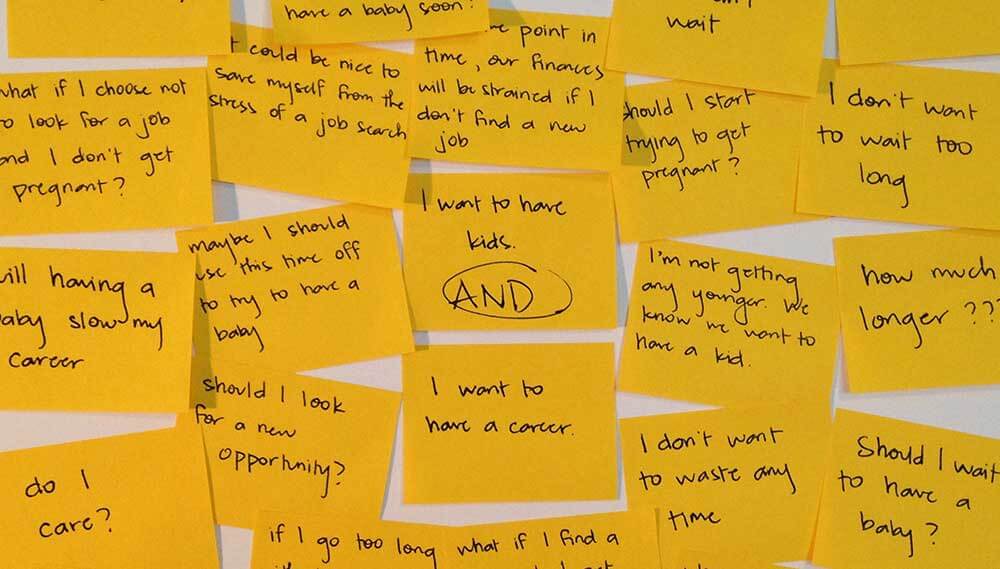 have a baby soon?
wait
what if I choose not
to look for a job
and I don't get
pregnant?
it could be nice to
save myself from the
stress of a job search
point in
time, our finances
will be strained if I
don't find a new
job
should I start
trying to get
pregnant?
I don't want
to wait too
long
will having a
baby slow my
career
maybe I should
use this time off
to try to have a
baby
I want to have
kids.
AND
I'm not getting
any younger. We
know we want to
have a kid.
how much
longer ??
do I
care?
should I look
for a new
opportunity?
I want to
have a career.
I don't want
to waste any
time
Should I wait
to have a
baby?
if I go too long
what if I find a